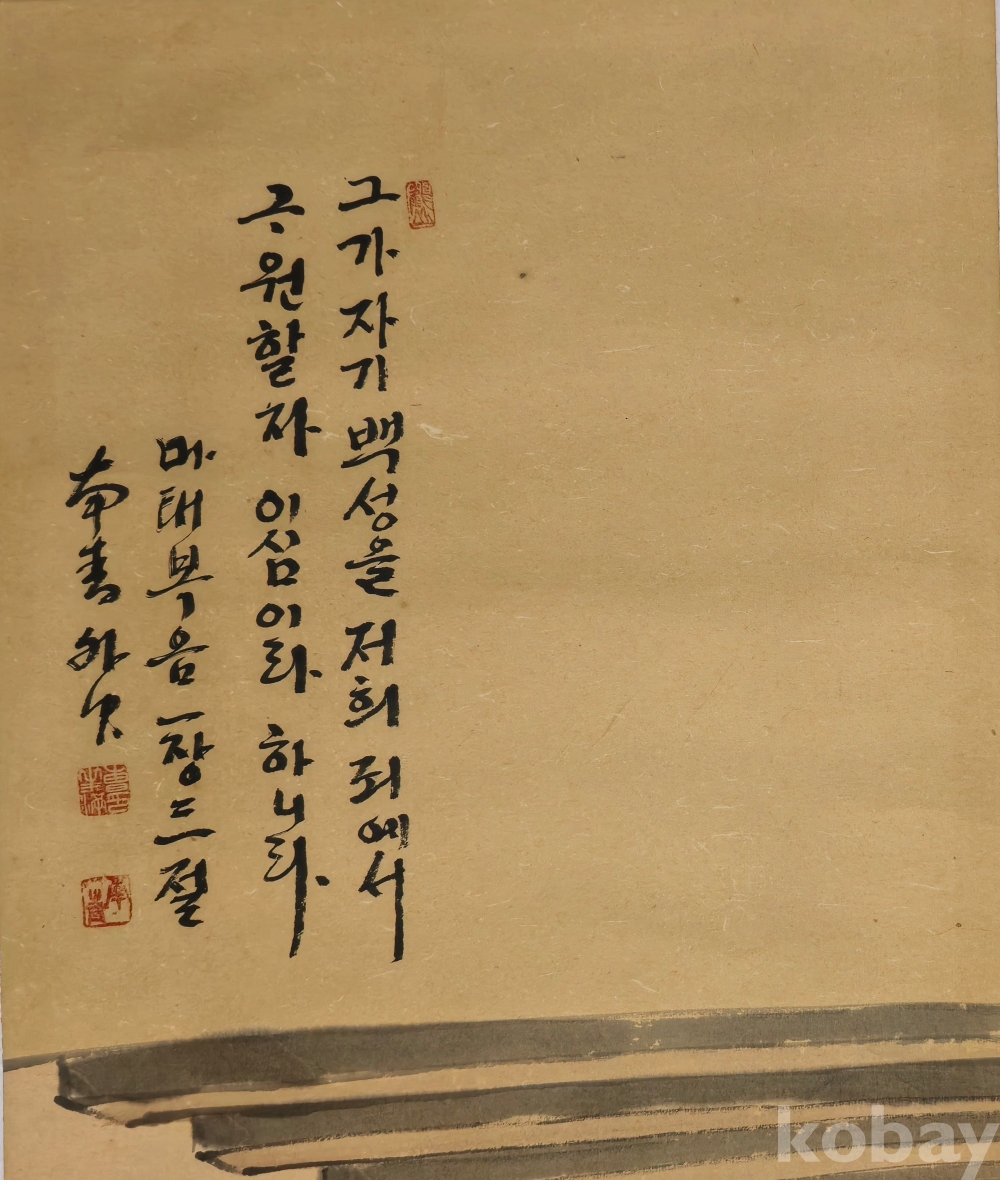 그가 자기 백성을 저희 죄에서
구원할 자 이심이라 하니라
마태복음 一장 절
kobay